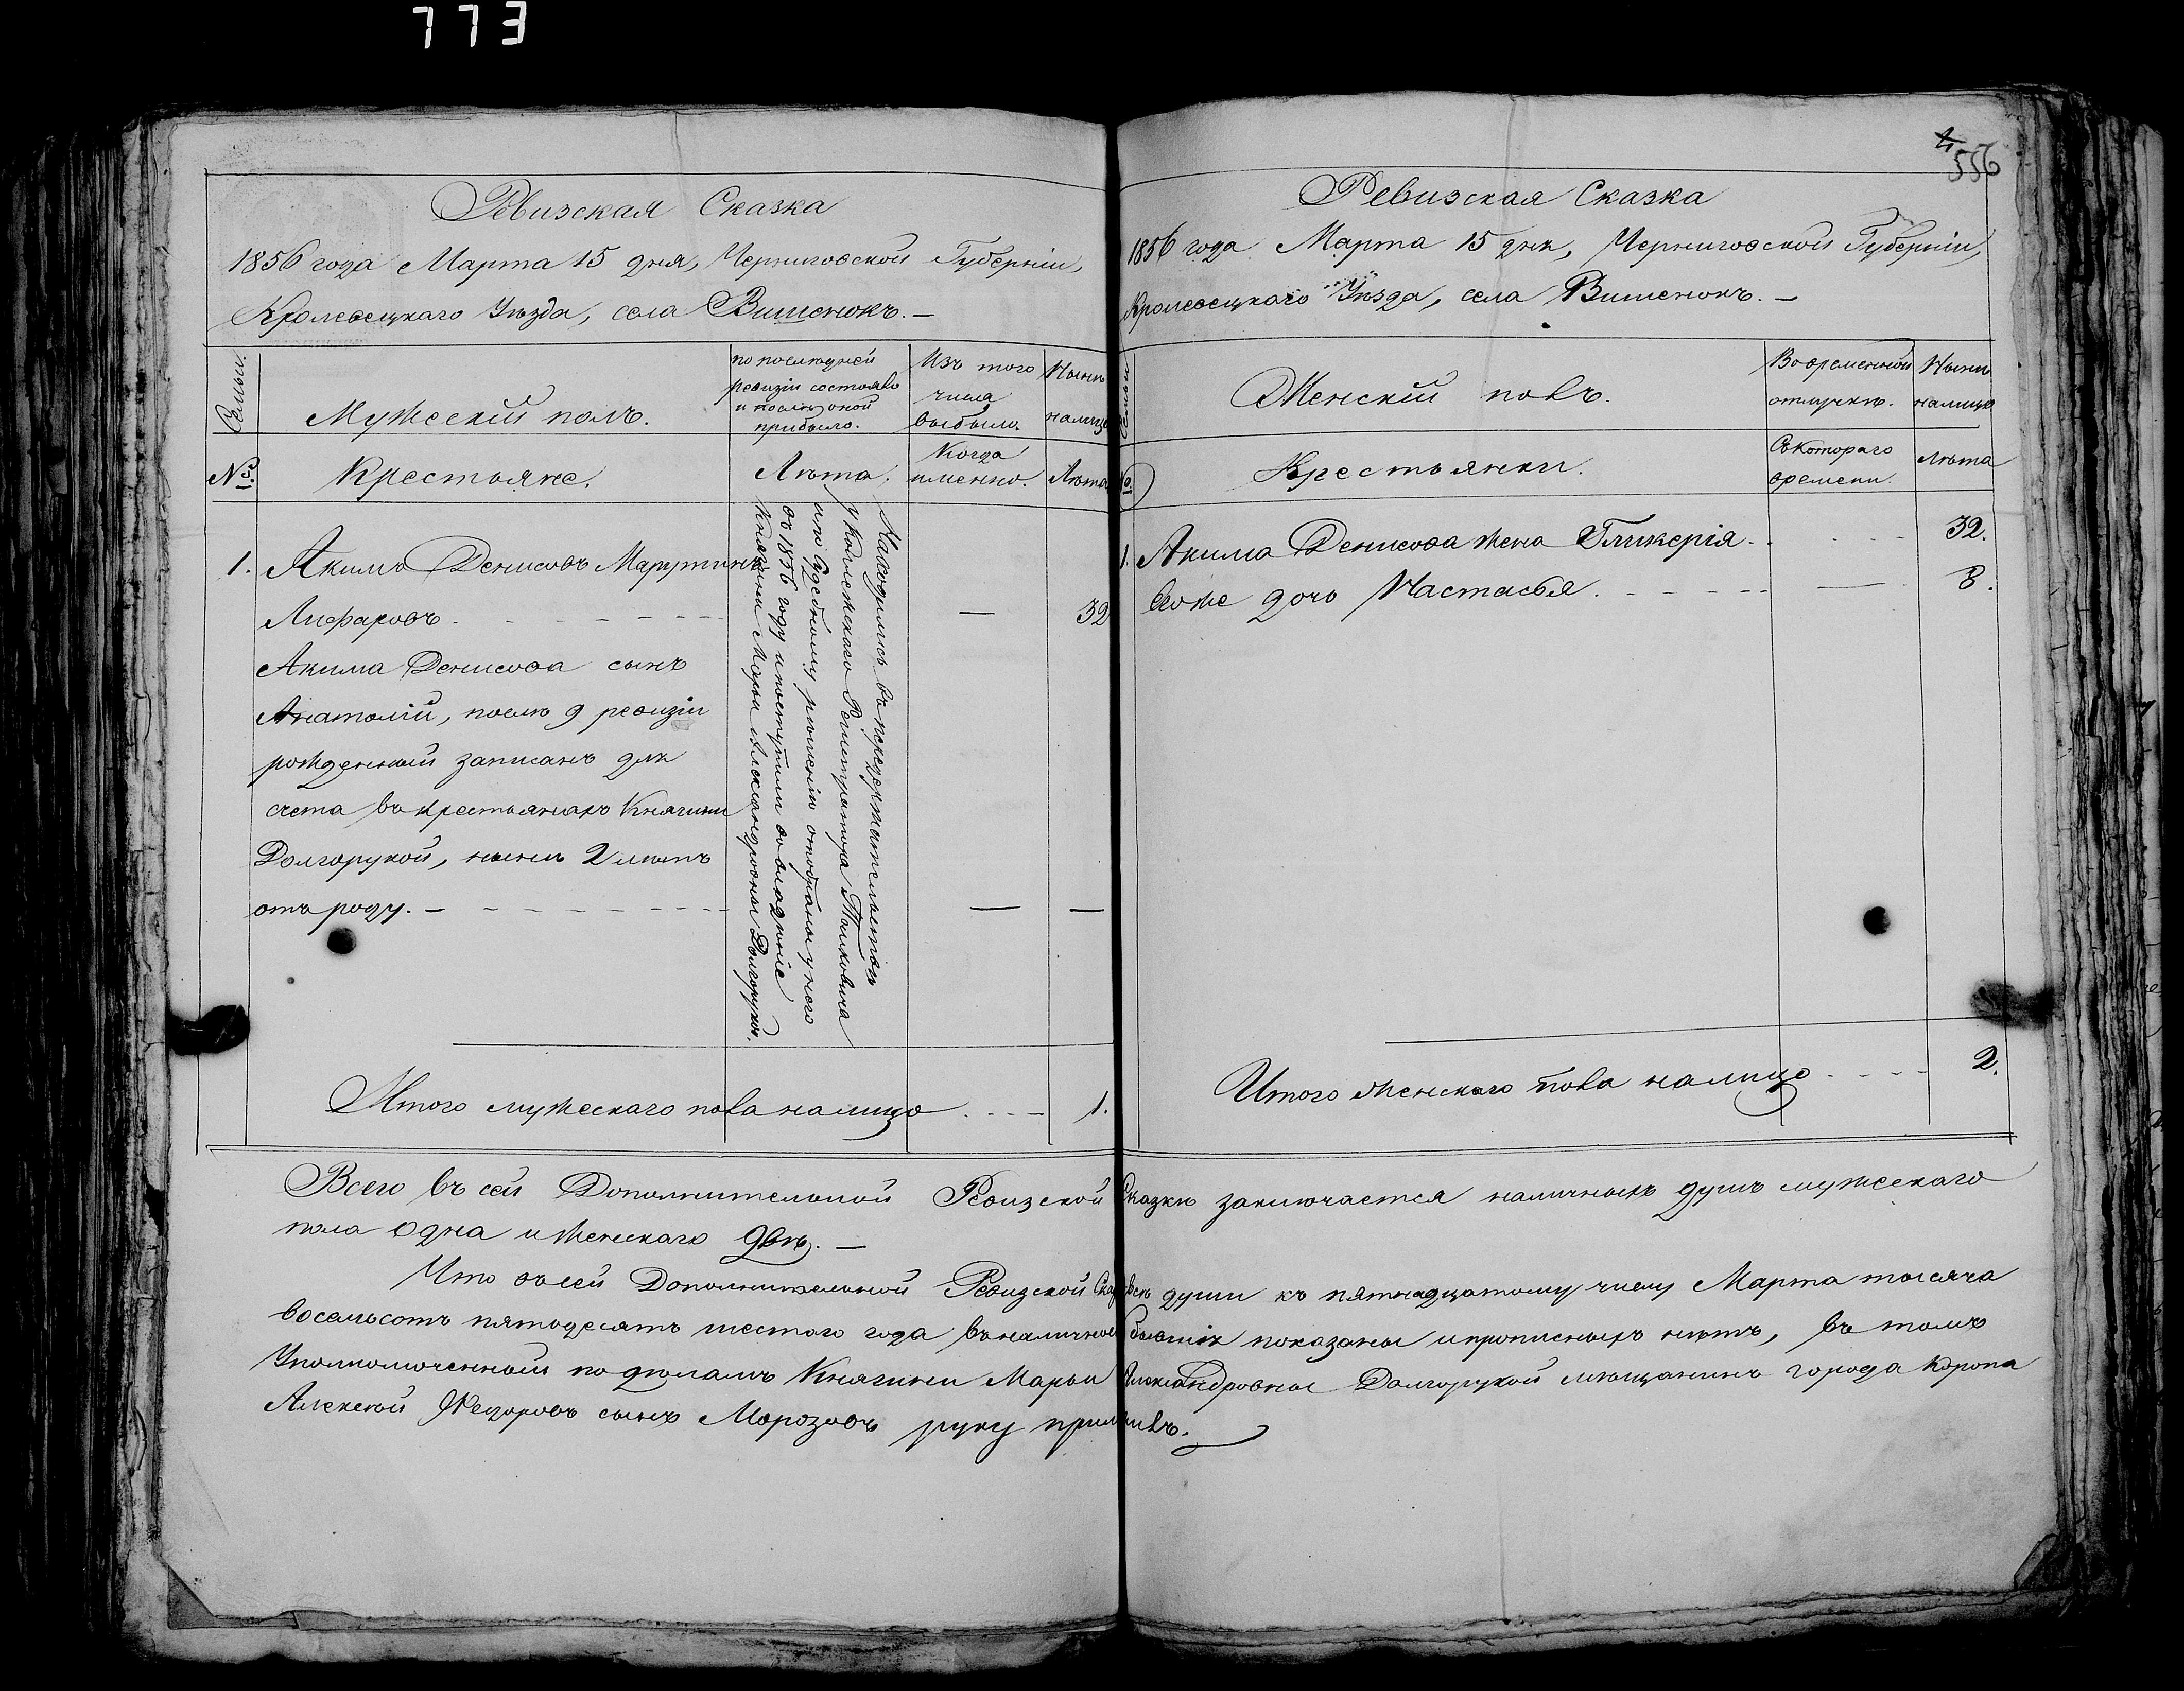 773
Ревизская Сказка
1856 года Марта 15 дня, Черниговской Губерніи,
Кролевецкаго Уѣзда, села Вишенокъ. —
Семьи.
Мужескій полъ.
по послѣдней
ревизіи состояло
и послѣ оной
прибыло.
Изъ того
числа
выбыло.
Нынѣ
налицо
№
Крестьяне.
Лѣта.
Когда
именно.
Лѣта
1. Акимъ Денисовъ Марутинъ
Лифаровъ . - - - - - - - — 32
Акима Денисова сынъ
Анатолій, послѣ 9 ревизіи
рожденный записанъ для
счета въ крестьянахъ Княгини
Долгорукой, нынѣ 2 лѣтъ
отъ роду. — - - - - - - - — —
Находились въ передержательствѣ
у Колежскаго Регистратора
и по судебному рѣшенію отобраны у него
въ 1856 году и поступили во владѣніе
Княгини Марьи Александровны Долгорукой.
Итого мужескаго пола налицо . - - - 1.
4
556
Ревизская Сказка
1856 года Марта 15 дня, Черниговской Губерніи,
Кролевецкаго Уѣзда, села Вишенокъ. —
Семьи
Женскій полъ.
Во временной
отлучкѣ.
Нынѣ
налицо
№
Крестьянки.
Съ котораго
времени.
Лѣта
1. Акима Денисова жена Гликерія - . - - - 32.
Егоже дочь Настасья . - - - - - — 8.
Итого женскаго пола налицо . - - - 2.
Всего въ сей Дополнительной Ревизской Сказкѣ заключается наличныхъ душъ мужескаго
пола одна и женскаго двѣ. —
Что въ сей Дополнительной Ревизской всѣ души къ пятнадцатому числу Марта тысяча
восемьсотъ пятдесятъ шестого года въ наличности показаны и прописныхъ нѣтъ, въ томъ
Уполномоченный по дѣламъ Княгини Марьи Александровны Долгорукой мѣщанинъ города Коропа
Алексѣй Федоровъ сынъ Морозовъ руку приложилъ.